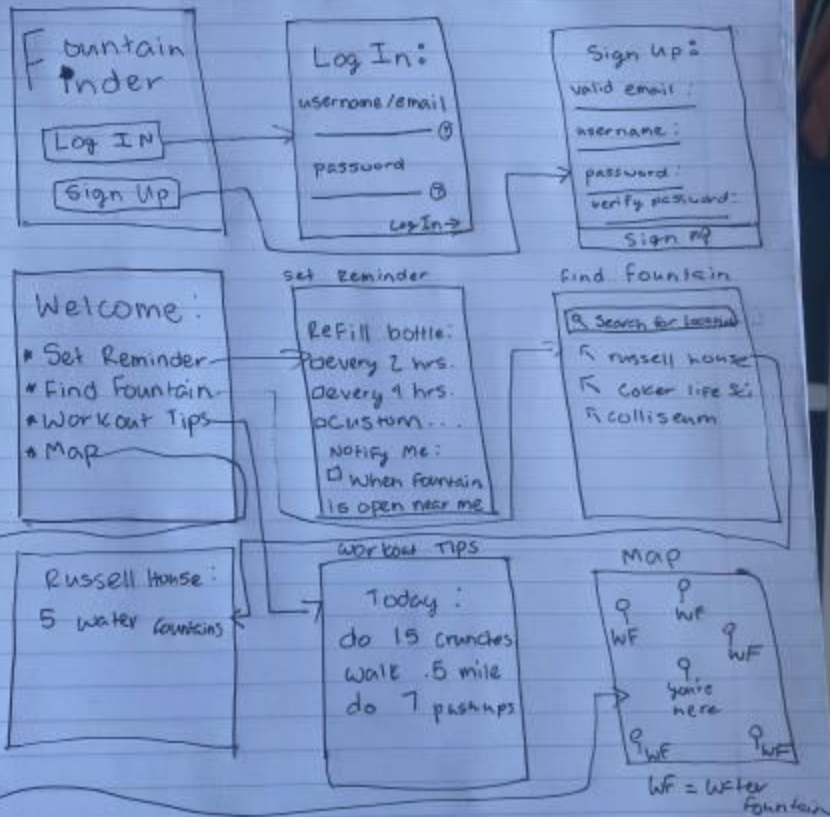 Fountain
Finder
Log IN
Sign Up
Log In:
username/email
?
password
?
Log In→
Sign Up:
valid email:
username:
password:
verify password:
Sign Up
Welcome:
* Set Reminder
* Find Fountain
* Workout Tips
* Map
Set Reminder
Refill bottle:
every 2 hrs.
every 4 hrs.
custom...
Notify Me:
When fountain
is open near me
Find Fountain
Search for location
russell house
coker life sci
colliseum
Russell House:
5 water fountains
Workout Tips
Today:
do 15 crunches
walk .5 mile
do 7 pushups
Map
WF
WF
WF
you're
here
WF
WF
WF = Water
Fountain